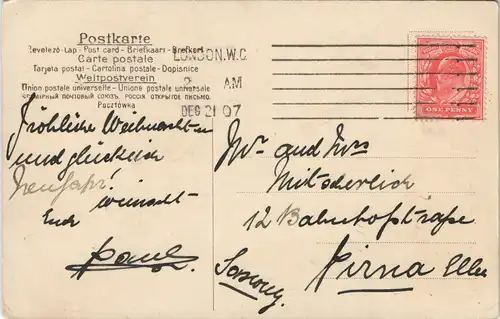 Postkarte
Levelező-Lap - Post card - Briefkaart - Brefkort
Carte postale
Tarjeta postal - Cartolina postale - Dopisnice
Weltpostverein
Union postale universelle - Unione postale universale
ВСЕМІРНЫЙ ПОЧТОВЫЙ СОЮЗЪ. РОССІЯ. ОТКРЫТОЕ ПИСЬМО.
Pocztówka
LONDON. W.C
2 AM
DEC 21 07
ONE PENNY
Fröhliche Weihnachten
und glücklich
Neujahr!
wünscht
Euch
Paul
Mr and Mrs
Mitscherlich
12 Bahnhofstraße
Pirna Elbe
Saxony.